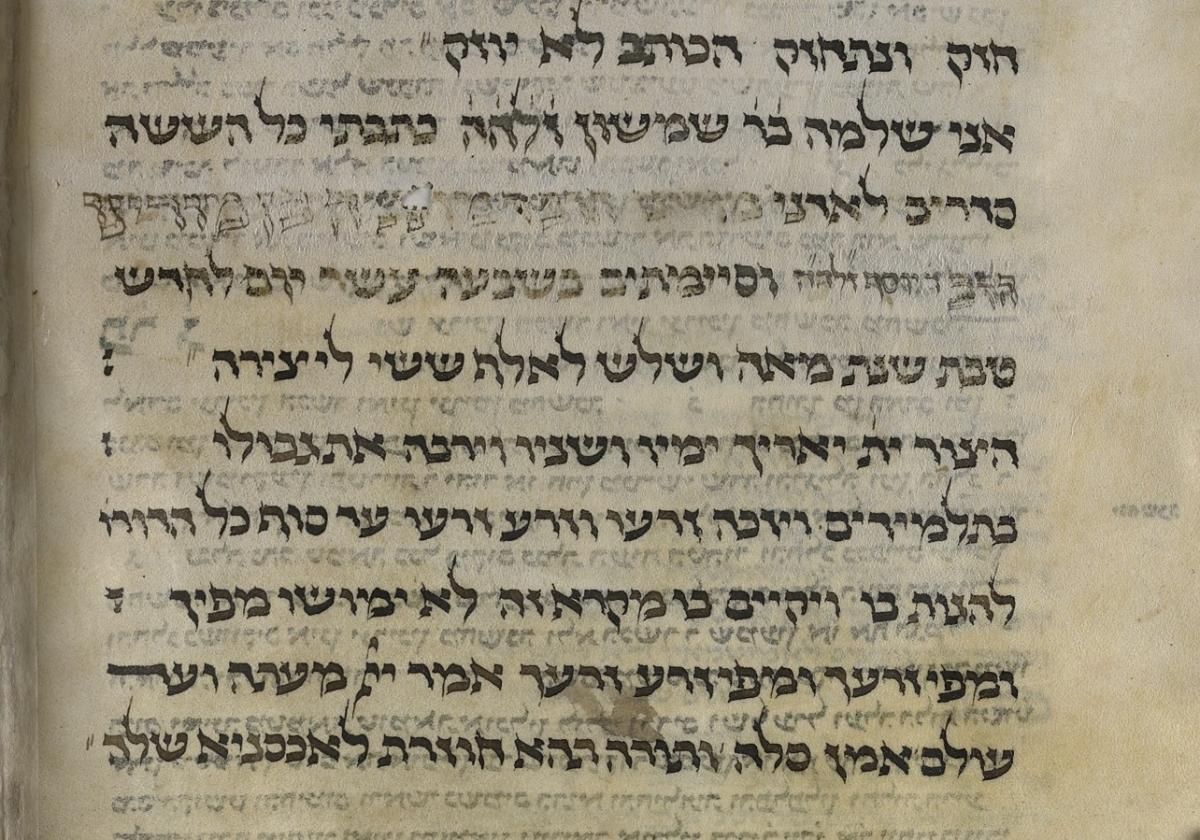 חזק ונתחזק הכותב לא יוזק
אני שלמה בר שמשון זלהה כתבתי כל הששה
סדרים לאדני
וסיימתים בשבעה עשר יום לחדש
טבת שנת מאה ושלש לאלף ששי ליצירה
הצור ית יאריך ימיו ושניו וירבה את גבולו
בתלמידים ויזכה זרעו וזרע זרעו עד סוף כל הדורו
להגות בו ויקיים בו מקרא זה לא ימושו מפיך
ומפי זרעך ומפי זרע זרעך אמר יי מעתה ועד
עולם אמן סלה ותורה תהא חוזרת לאכסניא שלך